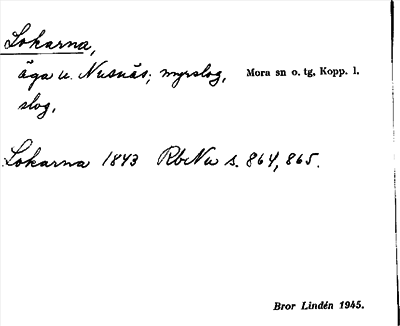 Lokarna,
äga u. Nusnäs; myrslog, Mora sn o. tg, Kopp. l.
slog.
Lokarna 1843 RbNu s. 864, 865.
Bror Lindén 1945.